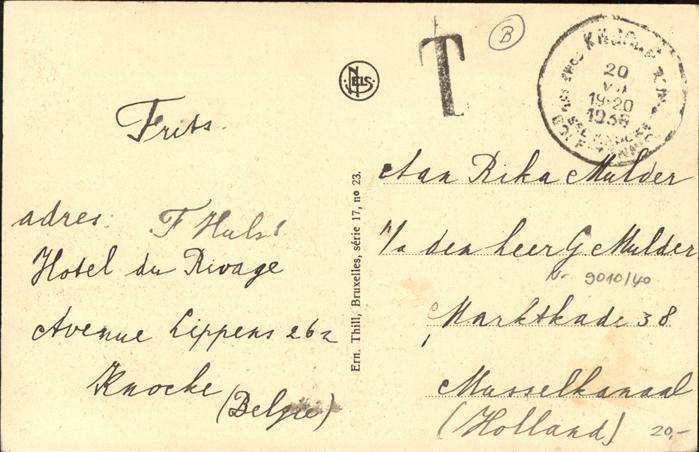 Frits.
adres. F Hulst
Hotel du Rivage
Avenue Lippens 262
Knocke (Belgie)
NELS
Ern. Thill, Bruxelles, série 17, no 23.
T
B
20
VII
19-20
1936
Aan Rika Mulder
p/a den heer G Mulder
Nr 9010/40
Marktkade 38
Musselkanaal
(Holland)
20,-